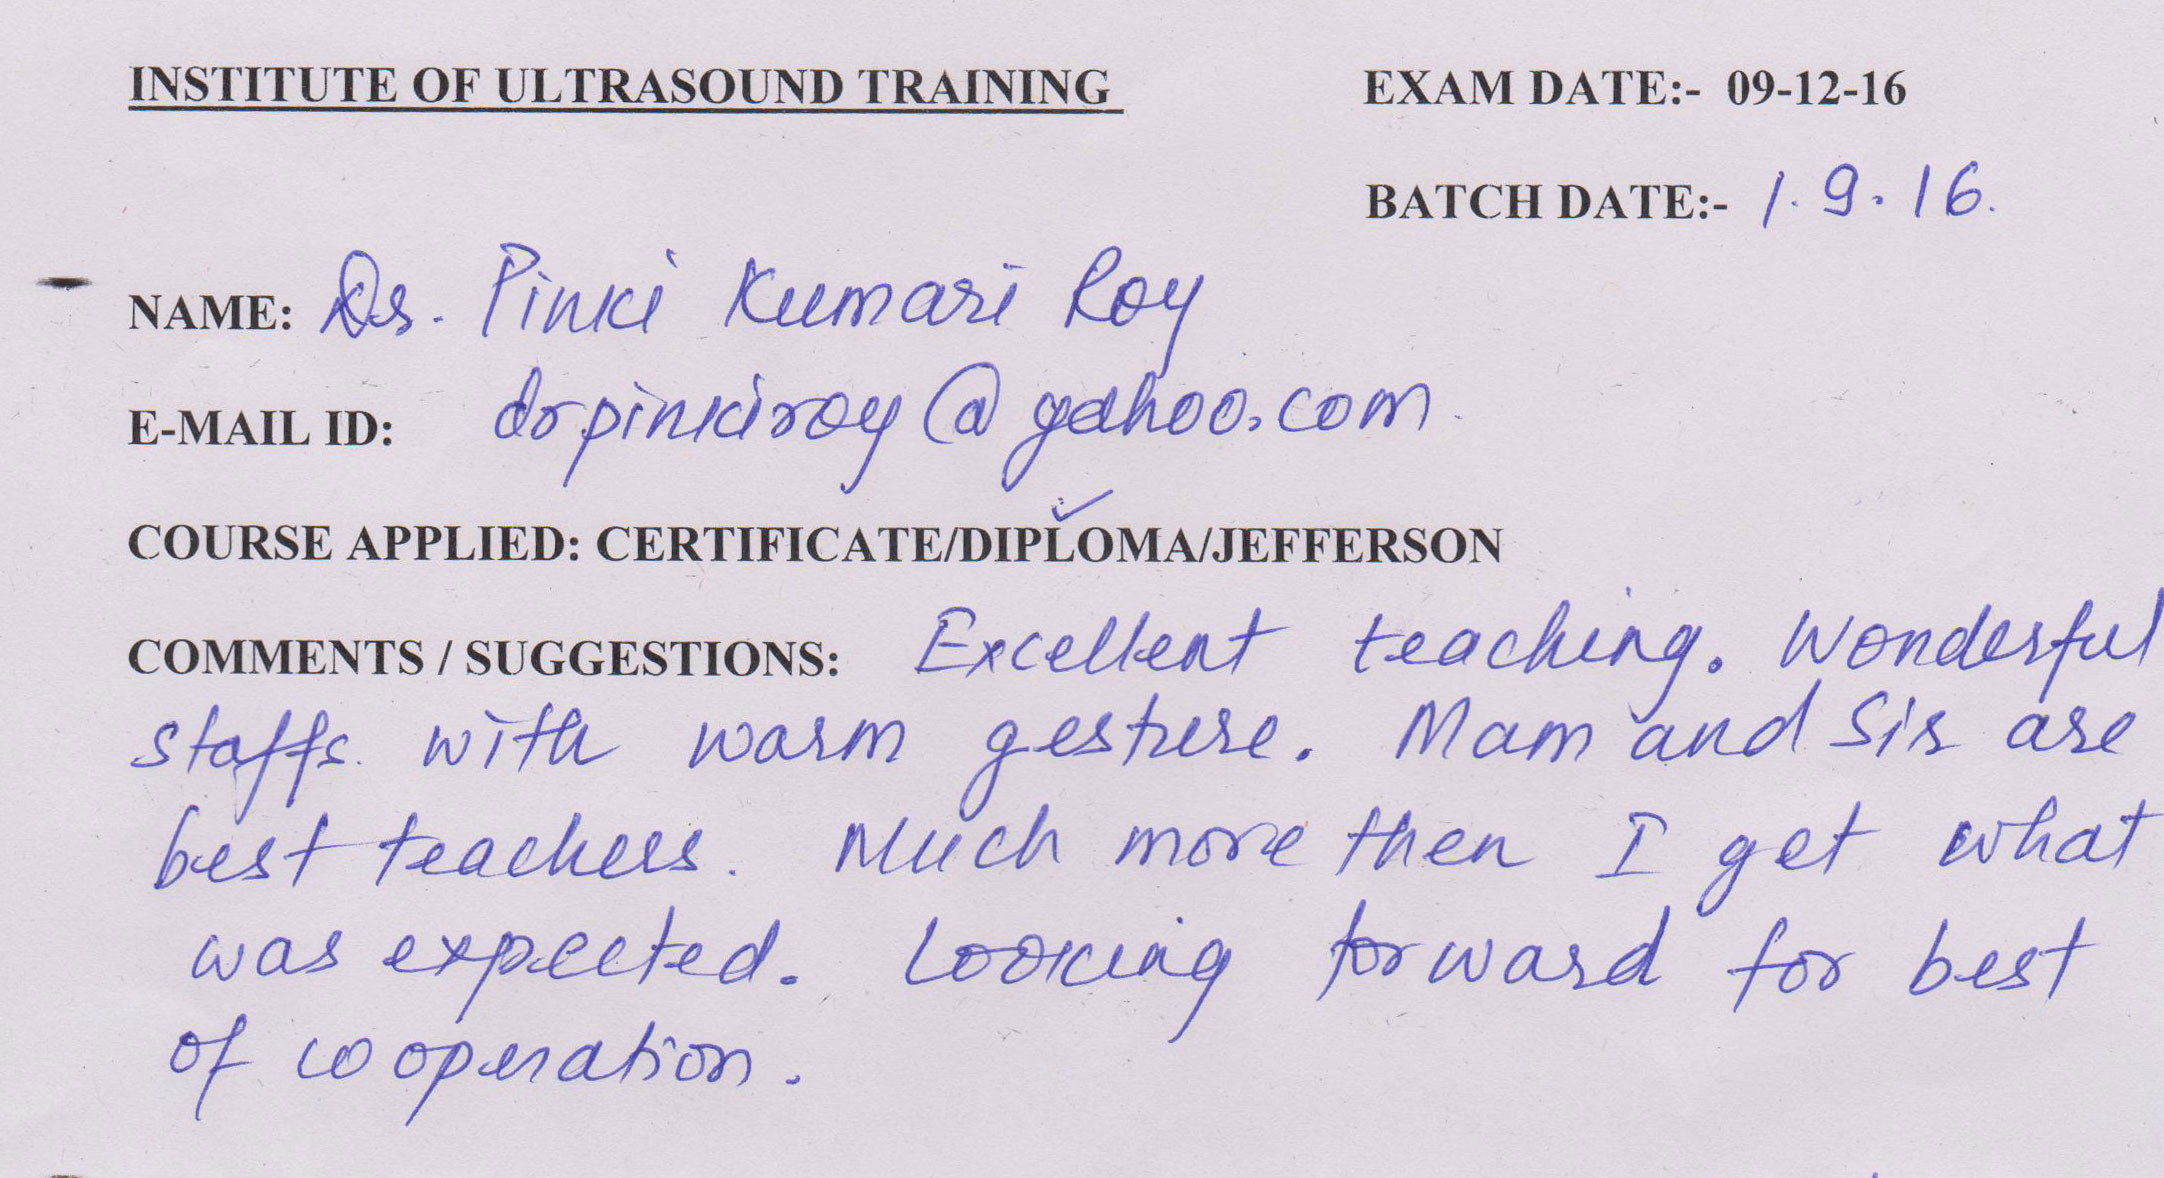 INSTITUTE OF ULTRASOUND TRAINING EXAM DATE:- 09-12-16
BATCH DATE:- 1.9.16.
NAME: Dr. Pinki Kumari Roy
E-MAIL ID: drpinkiroy@yahoo.com.
COURSE APPLIED: CERTIFICATE/DIPLOMA/JEFFERSON
COMMENTS / SUGGESTIONS: Excellent teaching. Wonderful
staffs. with warm gesture. Mam and Sir are
best teachers. Much more then I get what
was expected. Looking forward for best
of cooperation.